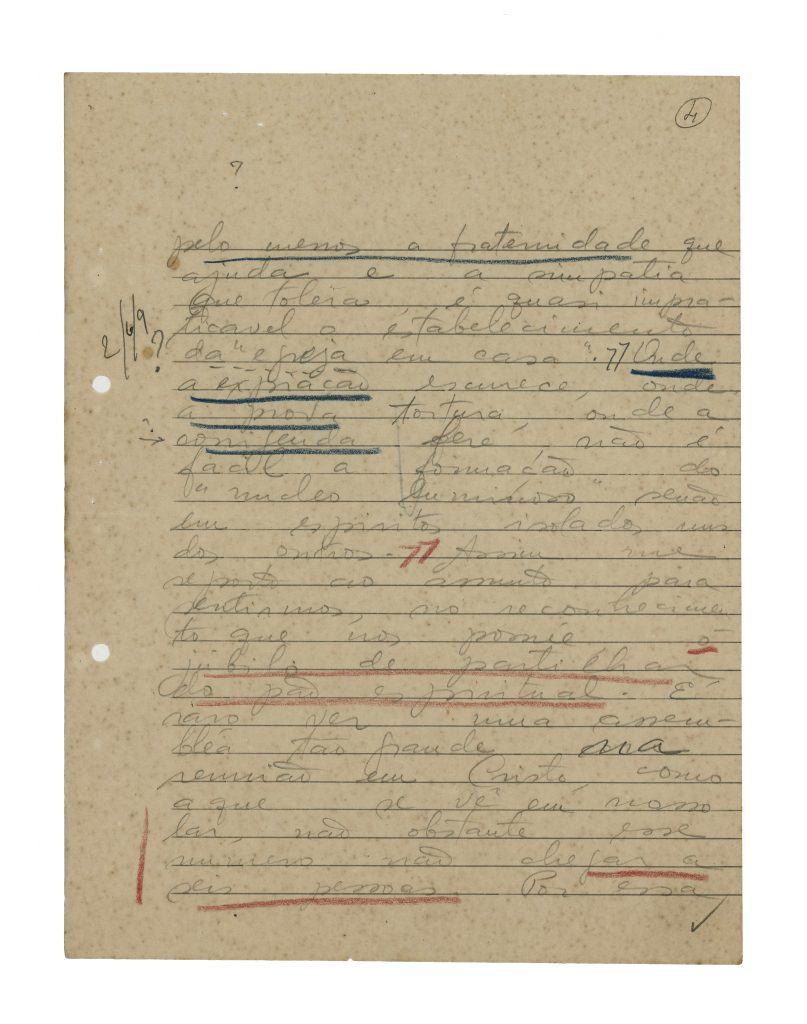 4
?
pelo menos a fraternidade que
ajuda e a simpatia
que tolera, é quasi impra-
ticavel o estabelecimento
2/6/9 ?
da "egreja em casa". Onde
a expiação escurece, onde
a prova tortura, onde a
contenda fere, não é
facil a formação do
"nucleo luminoso" senão
em espiritos isolados uns
dos outros. Assim me
reporto ao assunto para
sentirmos, no reconhecimen
to que nos possúe o
júbilo de partilhar
do pão espiritual. É
raro ver uma assem-
bléa tão grande na
reunião em Cristo, como
a que se vê em nosso
lar, não obstante esse
numero não chegar a
seis pessoas. Por essa